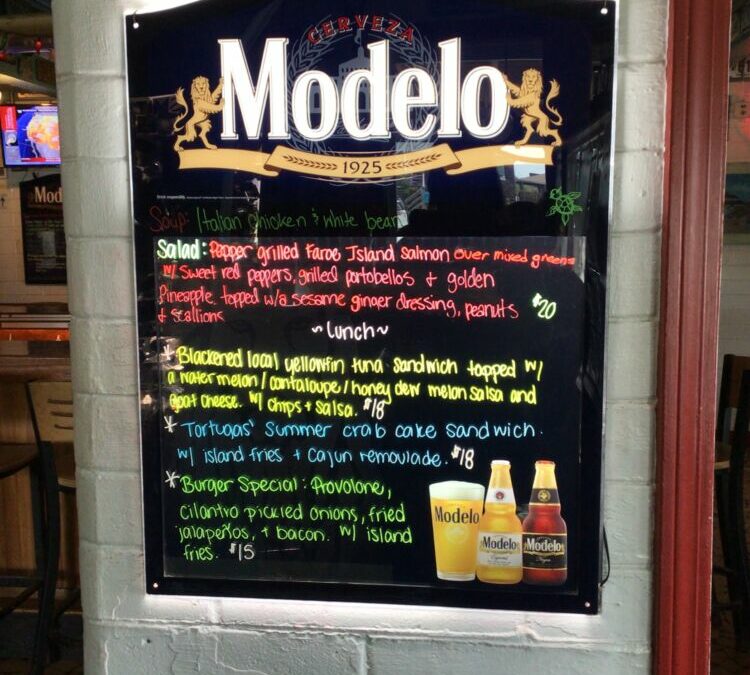 CERVEZA
Modelo
1925
Mod
Soup: Italian chicken & white bean
Salad: Pepper grilled Faroe Island salmon over mixed greens
w/ sweet red peppers, grilled portobellos + golden
Pineapple, topped w/a sesame ginger dressing, peanuts $20
+ scallions
~Lunch~
* Blackened local yellowfin tuna sandwich topped w/
a watermelon/cantaloupe/honey dew melon salsa and
goat cheese. w/ chips + salsa. $18
* Tortugas' Summer crab cake sandwich.
w/ island fries + cajun remoulade. $18
* Burger Special: Provolone,
cilantro pickled onions, fried
jalapeños, + bacon. w/ island
fries. $15
Modelo
Modelo
Modelo